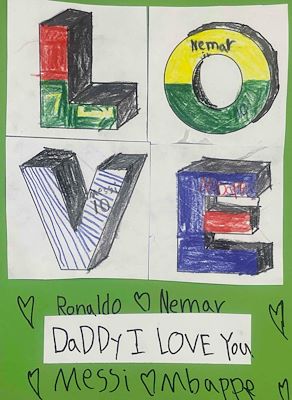 LOVE
Nemar
Jr
10
Messi
10
Mbappe
Ronaldo Nemar
DaDDy I LOVE You
Messi Mbappe